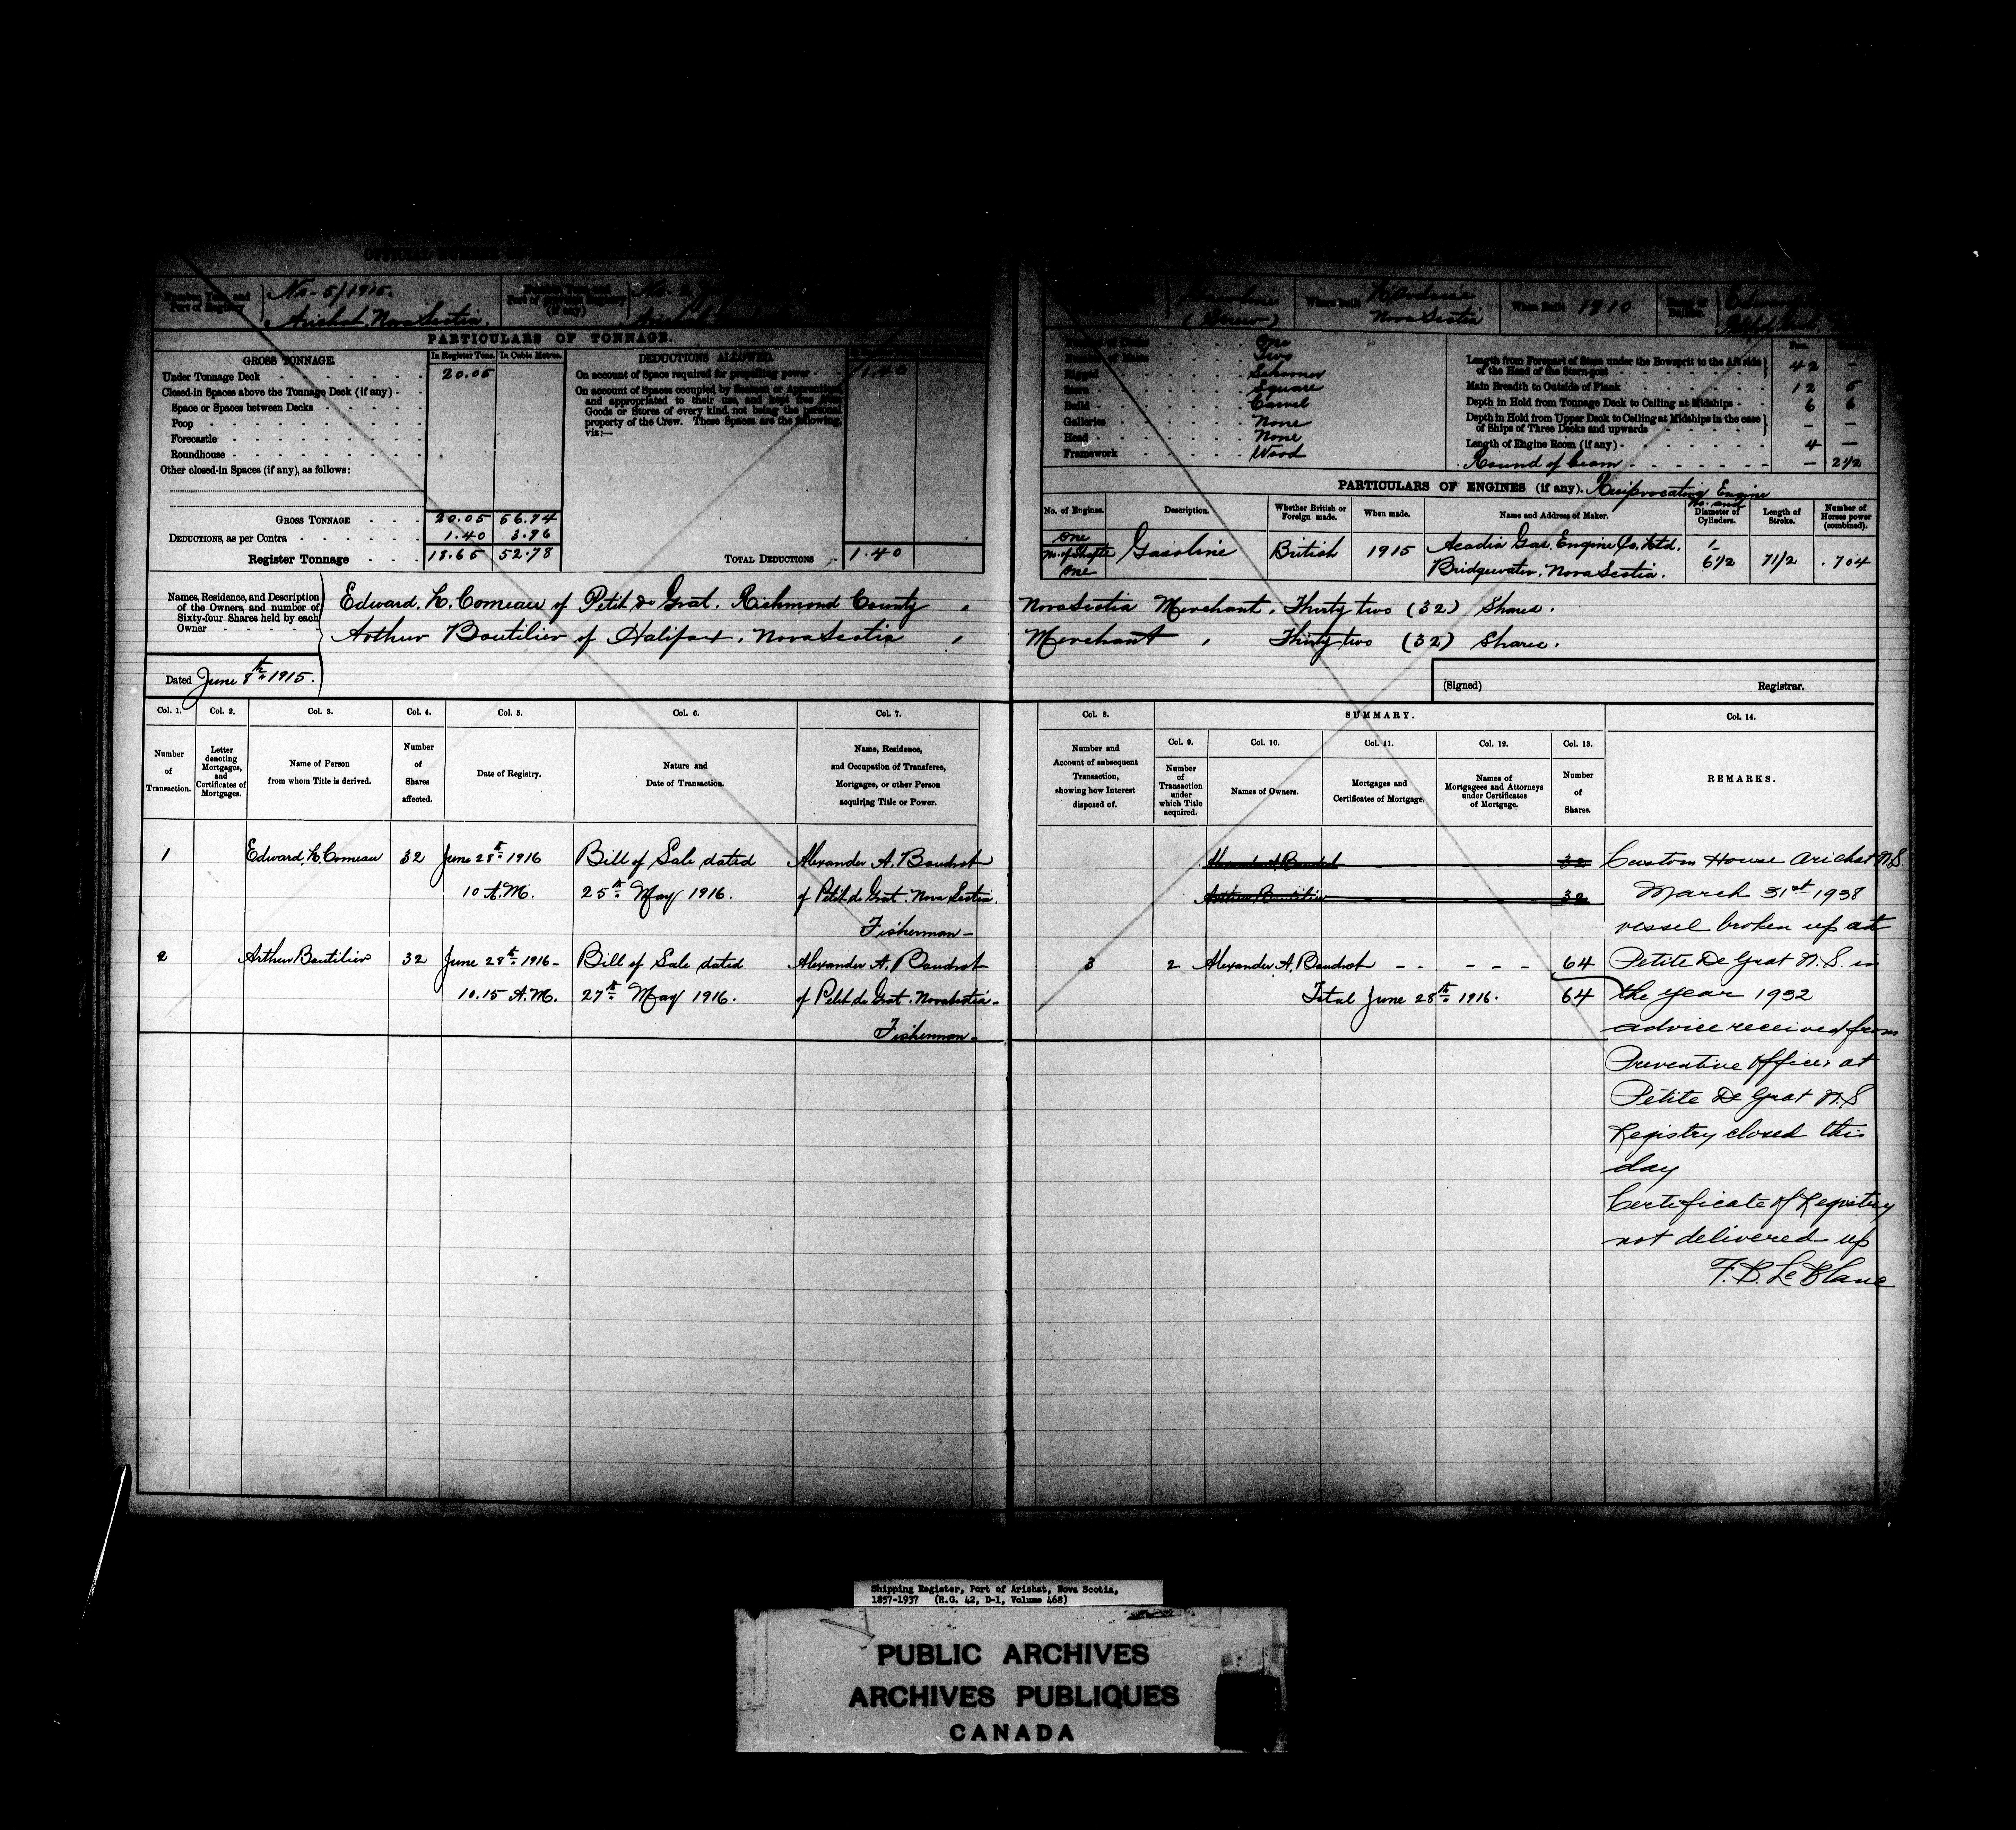 No. 5/1915.
Arichat, Nova Scotia.
(Screw)
When built
Nova Scotia
When Built 1910
PARTICULARS OF TONNAGE.
GROSS TONNAGE.
In Register Tons.
In Cubic Metres.
DEDUCTIONS ALLOWED.
Under Tonnage Deck 20.05
Closed-in Spaces above the Tonnage Deck (if any)
Space or Spaces between Decks
Poop
Forecastle
Roundhouse
Other closed-in Spaces (if any), as follows:
GROSS TONNAGE 20.05 56.74
DEDUCTIONS, as per Contra 1.40 3.96
Register Tonnage 18.65 52.78
On account of Space required for propelling power 1.40
On account of Spaces occupied by Seamen or Apprentices,
and appropriated to their use, and kept free from
Goods or Stores of every kind, not being the personal
property of the Crew. These Spaces are the following,
viz:—
TOTAL DEDUCTIONS 1.40
Number of Decks One
Number of Masts Two
Rigged Schooner
Stern Square
Build Carvel
Galleries None
Head None
Framework Wood
Length from Forepart of Stem under the Bowsprit to the Aft side
of the Head of the Stern-post 42 —
Main Breadth to Outside of Plank 12 5
Depth in Hold from Tonnage Deck to Ceiling at Midships 6 6
Depth in Hold from Upper Deck to Ceiling at Midships in the case
of Ships of Three Decks and upwards — —
Length of Engine Room (if any) 4 —
Round of beam — 2 1/2
PARTICULARS OF ENGINES (if any). Reciprocating Engine
No. of Engines.
Description.
Whether British or Foreign made.
When made.
Name and Address of Maker.
No. and Diameter of Cylinders.
Length of Stroke.
Number of Horses power (combined).
One
No. of Shafts
One
Gasoline
British
1915
Acadia Gas Engine Co. Ltd.
Bridgewater, Nova Scotia.
1
6 1/2
7 1/2
.704
Names, Residence, and Description
of the Owners, and number of
Sixty-four Shares held by each
Owner
Edward, H. Comeau of Petit de Grat. Richmond County, Nova Scotia Merchant, Thirty two (32) Shares.
Arthur Boutilier of Halifax, Nova Scotia, Merchant, Thirty two (32) Shares.
Dated June 8th 1915.
(Signed) Registrar.
Col. 1.
Number of Transaction.
Col. 2.
Letter denoting Mortgages, and Certificates of Mortgages.
Col. 3.
Name of Person from whom Title is derived.
Col. 4.
Number of Shares affected.
Col. 5.
Date of Registry.
Col. 6.
Nature and Date of Transaction.
Col. 7.
Name, Residence, and Occupation of Transferee, Mortgagee, or other Person acquiring Title or Power.
Col. 8.
Number and Account of subsequent Transaction, showing how Interest disposed of.
SUMMARY.
Col. 9.
Number of Transaction under which Title acquired.
Col. 10.
Names of Owners.
Col. 11.
Mortgages and Certificates of Mortgage.
Col. 12.
Names of Mortgagees and Attorneys under Certificates of Mortgage.
Col. 13.
Number of Shares.
Col. 14.
REMARKS.
1 Edward, H. Comeau 32 June 28th 1916 Bill of Sale dated Alexander A. Boudrot
10 A.M. 25th May 1916. of Petit de Grat. Nova Scotia.
Fisherman —
2 Arthur Boutilier 32 June 28th 1916 — Bill of Sale dated Alexander A. Boudrot
10.15 A.M. 27th May 1916. of Petit de Grat. Nova Scotia —
Fisherman —
Alexander A. Boudrot 32
Arthur Boutilier 32
3 2 Alexander A. Boudrot 64
Total June 28th 1916. 64
Custom House Arichat N.S.
March 31st 1938
vessel broken up at
Petite De Grat N.S. in
the year 1932
advice received from
Preventive Officer at
Petite De Grat N.S
Registry closed this
day
Certificate of Registry
not delivered up
F. B. LeBlanc
Shipping Register, Port of Arichat, Nova Scotia,
1857-1937 (R.G. 42, D-1, Volume 468)
PUBLIC ARCHIVES
ARCHIVES PUBLIQUES
CANADA